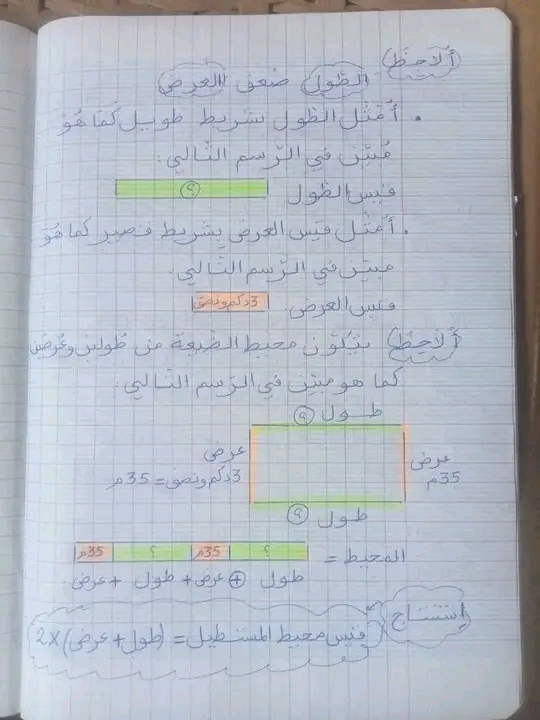 ألاحظ
الطول ضعف العرض
• أُمثّل الطول بشريط طويل كما هُوَ
مُبَيّن في الرّسم التّالي:
قيس الطّول ؟
• أُمثّل قيس العرض بشريط قصير كما هُوَ
مبيّن في الرّسم التّالي.
قيس العرض. 3دكم ونصف
ألاحِظ يتكوّن محيط الضّيعة من طُولين وعُرضين
كما هو مبيّن في الرّسم التّالي.
طول ؟
عرض
3دكم ونصف = 35م
عرض
35م
طول ؟
المحيط = ؟ 35م ؟ 35م
طول + عرض + طول + عرض.
إستنتاج
قيس محيط المستطيل = (طول + عرض) 2X